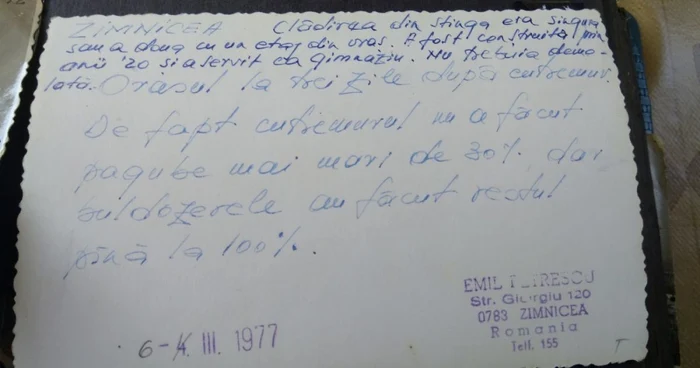 ZIMNICEA Clădirea din stînga era singura
sau a doua cu un etaj din oraș. A fost construită prin
anii '20 și a servit ca gimnaziu. Nu trebuia demo-
lată. Orașul la trei zile după cutremur.
De fapt cutremurul nu a făcut
pagube mai mari de 30% dar
buldozerele au făcut restul
pînă la 100%.
6- III. 1977
EMIL PETRESCU
Str. Giurgiu 120
0783 ZIMNICEA
Romania
Tell. 155
T